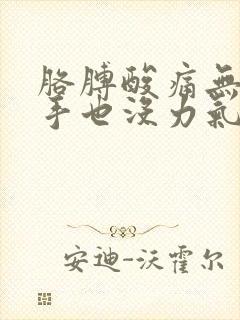 胳膊酸痛無
手也沒力氣
安迪-沃霍尔